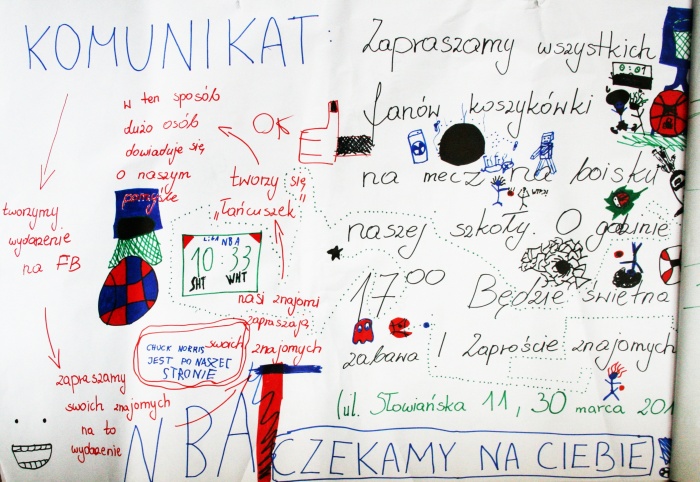 KOMUNIKAT:
Zapraszamy wszystkich
fanów koszykówki
na mecz na boisku
naszej szkoły. O godzinie
17⁰⁰ Będzie świetna
zabawa! Zaproście znajomych
(ul. Słowiańska 11, 30 marca 201
CZEKAMY NA CIEBIE
0:01
tworzymy
wydarzenie
na FB
zapraszamy
swoich znajomych
na to
wydarzenie
nasi znajomi
zapraszają
swoich znajomych
tworzy się
"Łańcuszek"
w ten sposób
dużo osób
dowiaduje się
o naszym
pomyśle
OK
Liga NBA
10 33
SHT WNT
CHUCK NORRIS
JEST PO NASZEJ
STRONIE
NBA